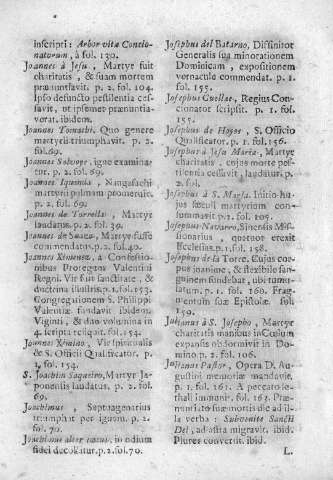 inscripti: Arbor vitæ Concio-
natorum, à fol. 130.
Joannes à Jesu, Martyr fuit
charitatis, & suam mortem
prænuntiavit. p. 2. fol. 104.
Ipso defuncto pestilentia ces-
savit, ut ipsemet prænuntia-
verat. ibidem.
Joannes Tomachi. Quo genere
martyrii triumphavit. p. 2.
fol. 69.
Joannes igne examina-
tur. p. 2. fol. 69.
Joannes Nangasachi
martyrii palmam promeruit.
p. 2. fol. 69.
Joannes de Torrella, Martyr
laudatus. p. 2. fol. 39.
Joannes de Martyr suffo
commendatus. p. 2. fol. 40.
Joannes Ximenez, à Confessio-
nibus Proregtus Valentini
Regni. Vir fuit sanctitate, &
doctrina illustris. p. 1. fol. 153.
Congregationem S. Philippi
Valentiæ fundavit ibidem.
Viginti, & duo volumina in
4. scripta reliquit. fol. 154.
Joannes Ximino, Vir spiritualis
& S. Officii Qualificator. p.
1. fol. 154.
S. Joachim Martyr Ja-
ponensis laudatus. p. 2. fol.
69.
Joachimus, Septuagenarius
triumphat per ignem. p. 2.
fol. 70.
Joachimus alter in odium
fidei decollatur. p. 2. fol. 70.
Josephus del Batarno, Diffinitor
Generalis sua minorationem
Dominicam, expositionem
vernacule commendat. p. 1.
fol. 155.
Josephus Cuellae, Regius Con-
cionator scripsit. p. 1. fol.
155.
Josephus de Hoyos, S. Officio
Qualificator. p. 1. fol. 156.
Josephus à Jesu Maria, Martyr
charitatis, cujus morte pes-
tilentia cessavit, laudatur. p.
2. fol.
Josephus à S. Maria. Initio hu-
jus sæculi martyrium con-
summavit. p. 2. fol. 105.
Josephus Navarro, Sinensis Mis-
sionarius, quatuor erexit
Ecclesias. p. 1. fol. 158.
Josephus de la Torre. Cujus cor-
pus joanione, & flexibile san-
guinem fundebat, ubi tumu-
latum. p. 1. fol. 160. Frag-
mentum suæ Epistolæ. fol.
159.
Julianus à S. Josepho, Martyr
charitatis manibus in Cœlum
expansis obdormivit in Do-
mino. p. 2. fol. 106.
Julianus Pastor, Opera D. Au-
gustini memoriæ mandavit.
p. 1. fol. 161. A peccato le-
thali immunis. fol. 161. Præ-
nuntiato suæ mortis die ad il-
la verba: Subvenite Sancti
Dei, ad astra migravit. ibid.
Plures convertit. ibid.
L.